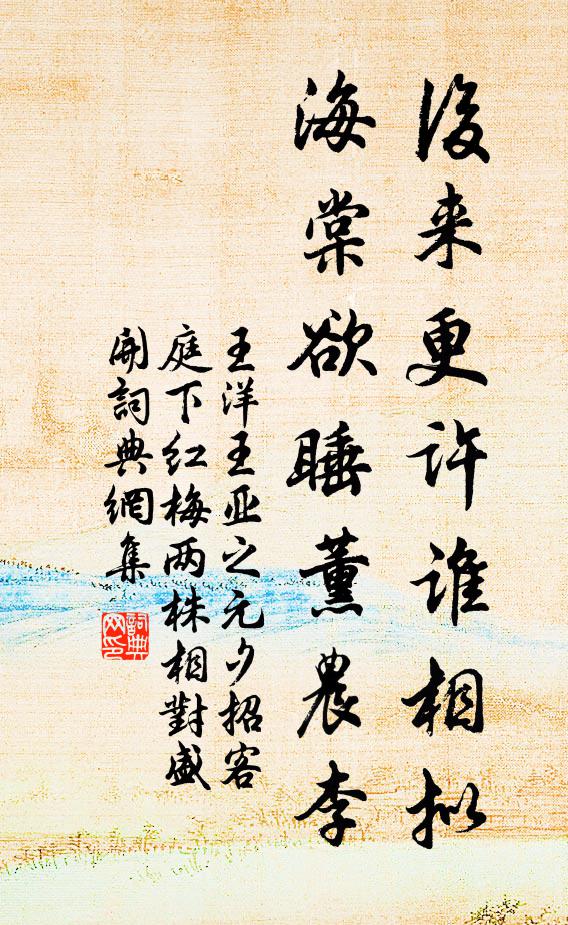 後来更许谁相拟
海棠欲睡薰農李
王洋王亚之元夕招客
庭下红梅两株相對盛
開詞典網集
詞典
网印